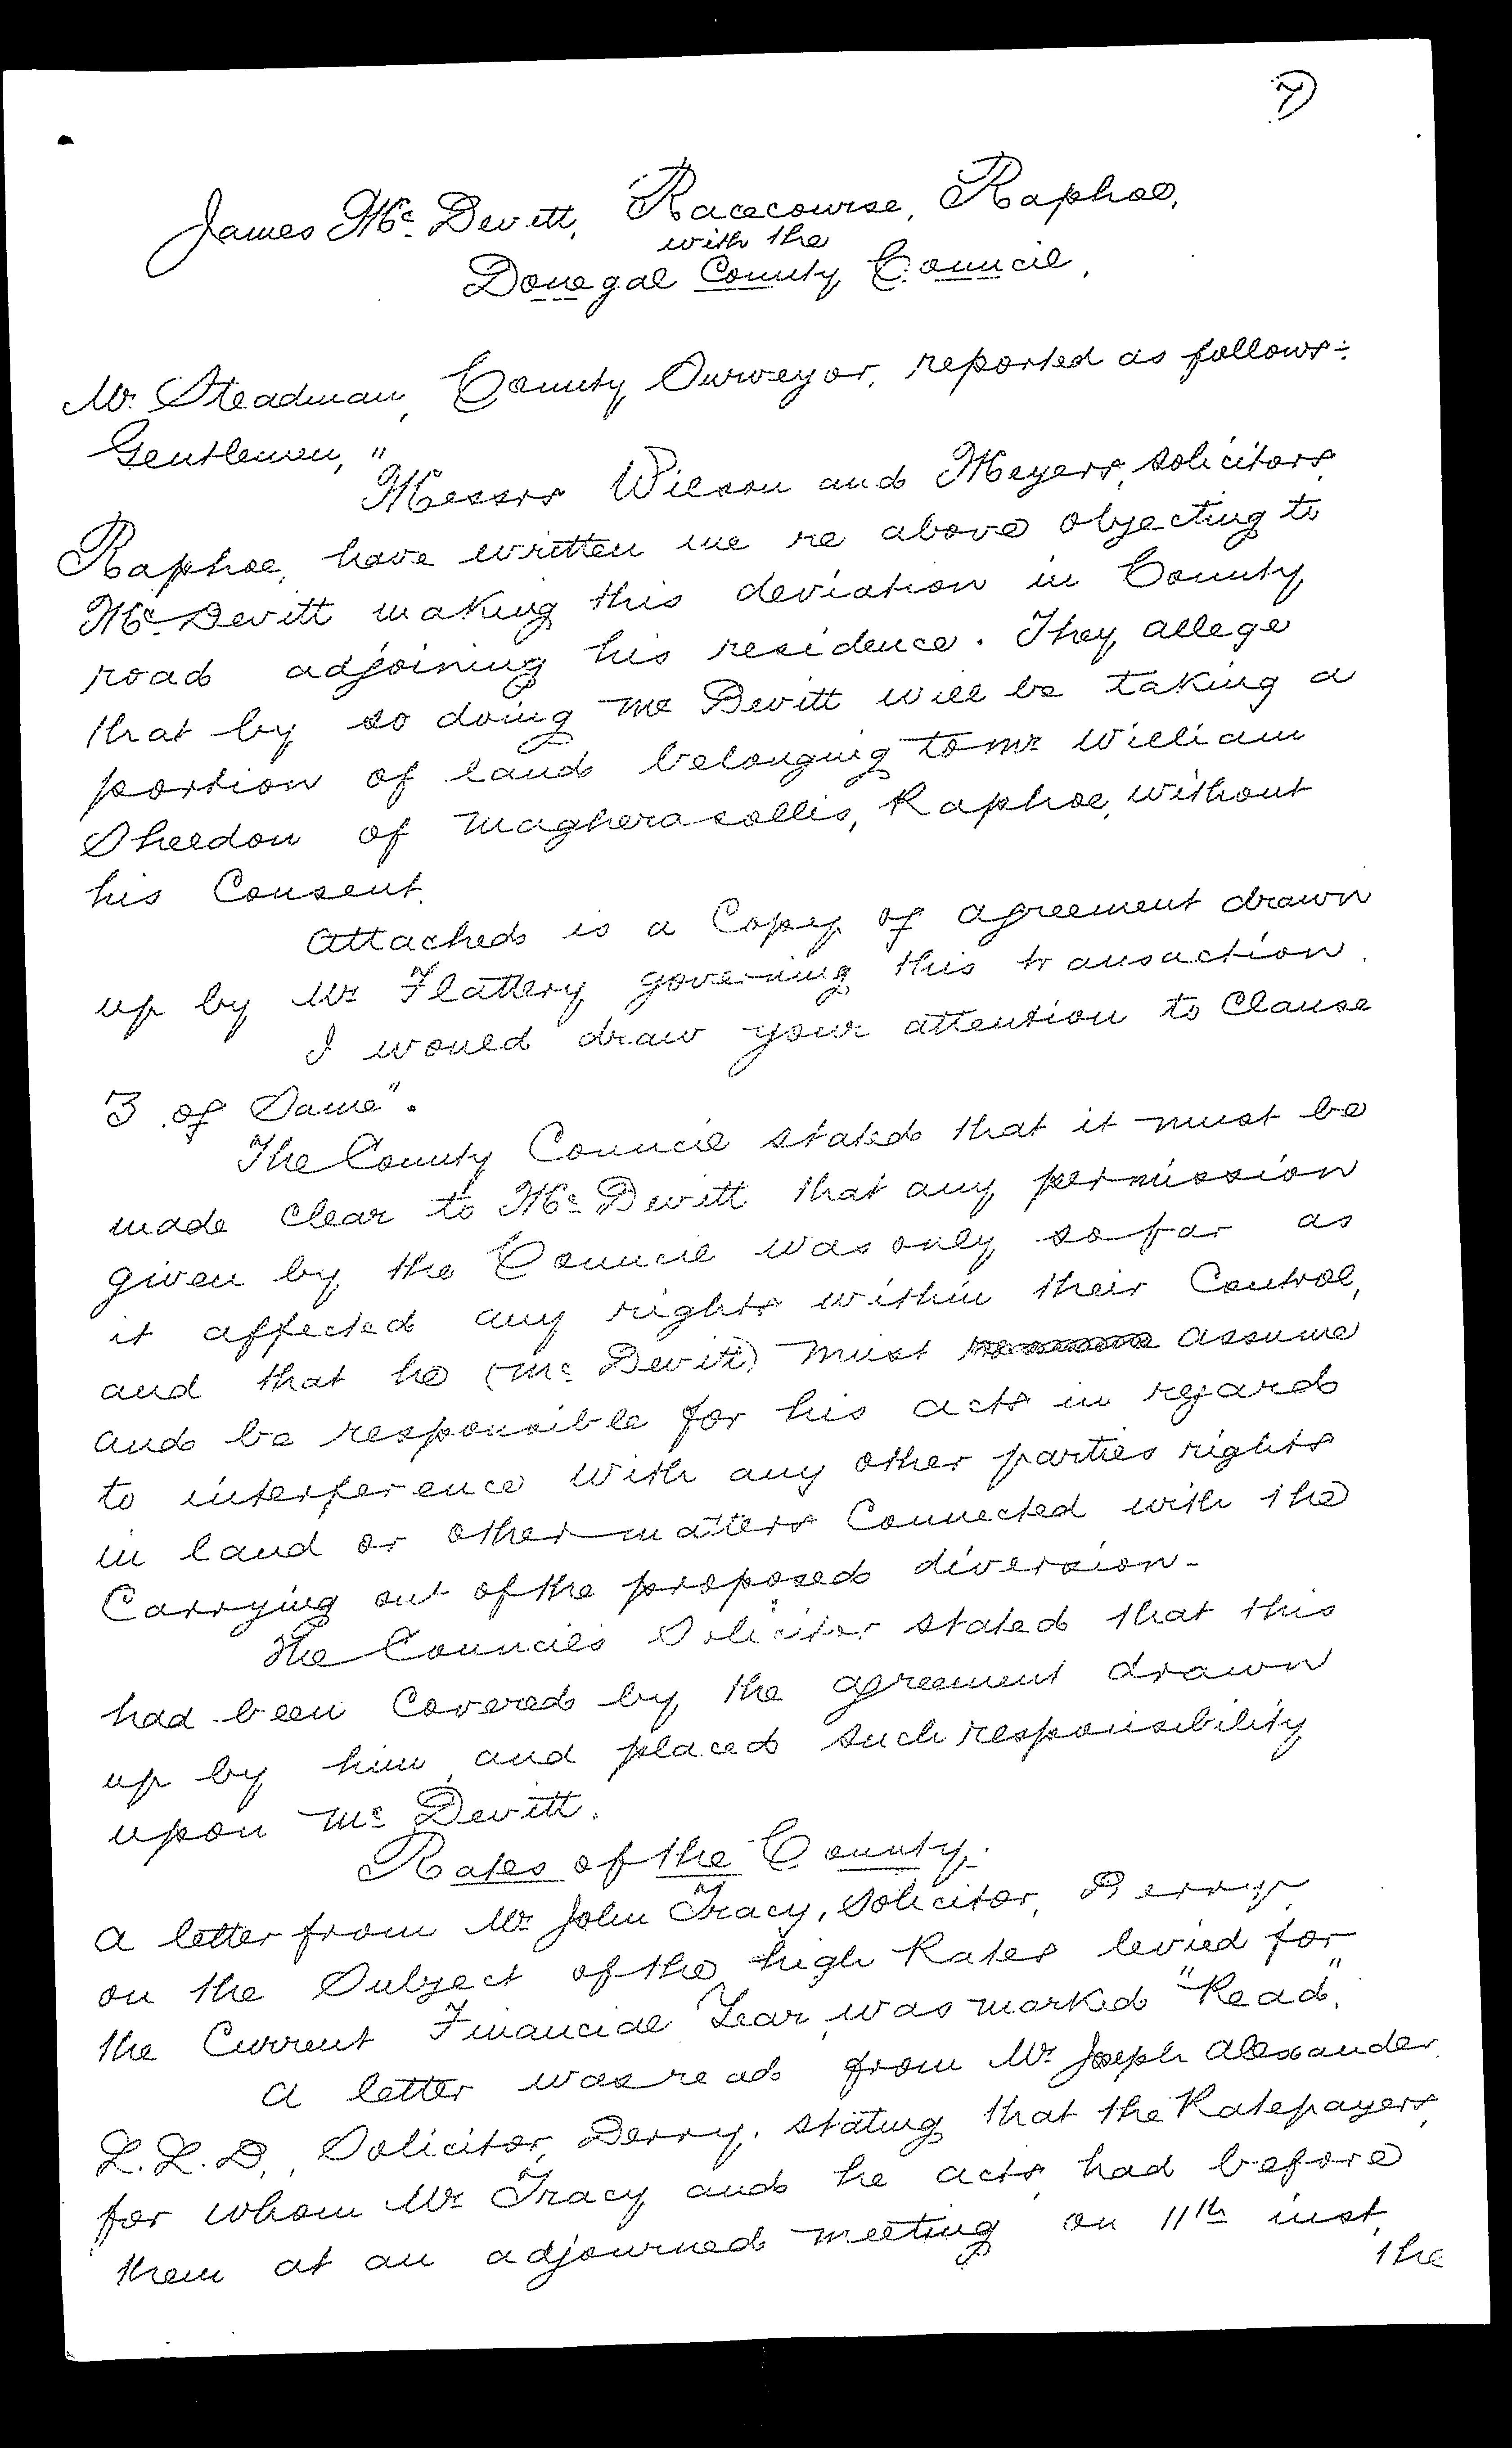 7
James Mc Devitt, Racecourse, Raphoe,
with the
Donegal County Council.
Mr. Steadman, County Surveyor, reported as follows:-
Gentlemen, "
Messrs Wilson and Meyers, solicitors,
Raphoe, have written me re above objecting to
Mc Devitt making this deviation in County
road adjoining his residence. They allege
that by so doing Mc Devitt will be taking a
portion of land belonging to Mr William
Sheldon of Magherasollis, Raphoe, without
his Consent.
Attached is a Copy of agreement drawn
up by Mr Flattery governing this transaction.
I would draw your attention to Clause
3 of Same".
The County Council stated that it must be
made clear to Mc Devitt that any permission
given by the Council was only so far as
it affected any rights within their Control,
and that he (Mc Devitt) must assume
and be responsible for his acts in regard
to interference with any other parties rights
in land or other matters Connected with the
Carrying out of the proposed diversion-
The Council's Solicitor stated that this
had been Covered by the agreement drawn
up by him, and placed such responsibility
upon Mc Devitt.
Rates of the County.
A letter from Mr John Tracy, Solicitor, Derry,
on the Subject of the high Rates levied for
the Current Financial Year, was marked "Read".
A letter was read from Mr Joseph Alexander,
L.L.D., Solicitor, Derry, stating that the Ratepayers,
for whom Mr Tracy and he acts, had before
them at an adjourned meeting on 11th inst,
the